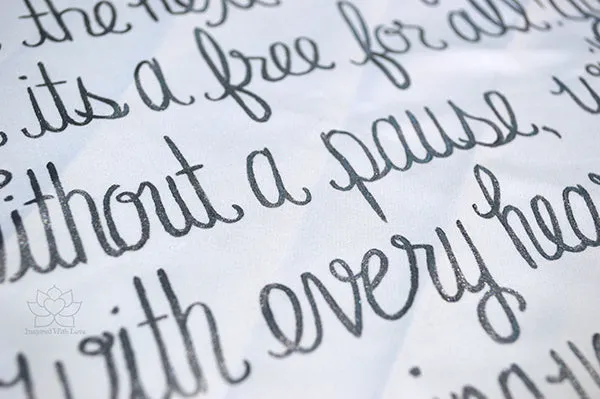 the
its a free for all
without a pause,
with every
Inspired With Love